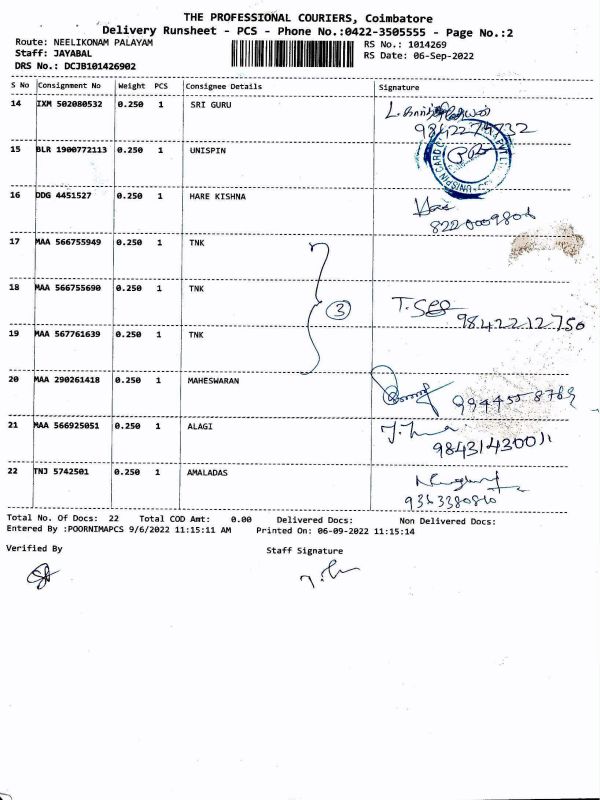 THE PROFESSIONAL COURIERS, Coimbatore
Delivery Runsheet - PCS - Phone No.:0422-3505555 - Page No.:2
Route: NEELIKONAM PALAYAM
Staff: JAYABAL
DRS No.: DCJB101426902
RS No.: 1014269
RS Date: 06-Sep-2022
S No Consignment No Weight PCS Consignee Details Signature
14 IXM 502080532 0.250 1 SRI GURU
15 BLR 1900772113 0.250 1 UNISPIN
16 DDG 4451527 0.250 1 HARE KISHNA
17 MAA 566755949 0.250 1 TNK
18 MAA 566755690 0.250 1 TNK 3 9842212750
19 MAA 567761639 0.250 1 TNK
20 MAA 290261418 0.250 1 MAHESWARAN
21 MAA 566925051 0.250 1 ALAGI
22 TNJ 5742501 0.250 1 AMALADAS
Total No. Of Docs: 22 Total COD Amt: 0.00 Delivered Docs: Non Delivered Docs:
Entered By :POORNIMAPCS 9/6/2022 11:15:11 AM Printed On: 06-09-2022 11:15:14
Verified By Staff Signature